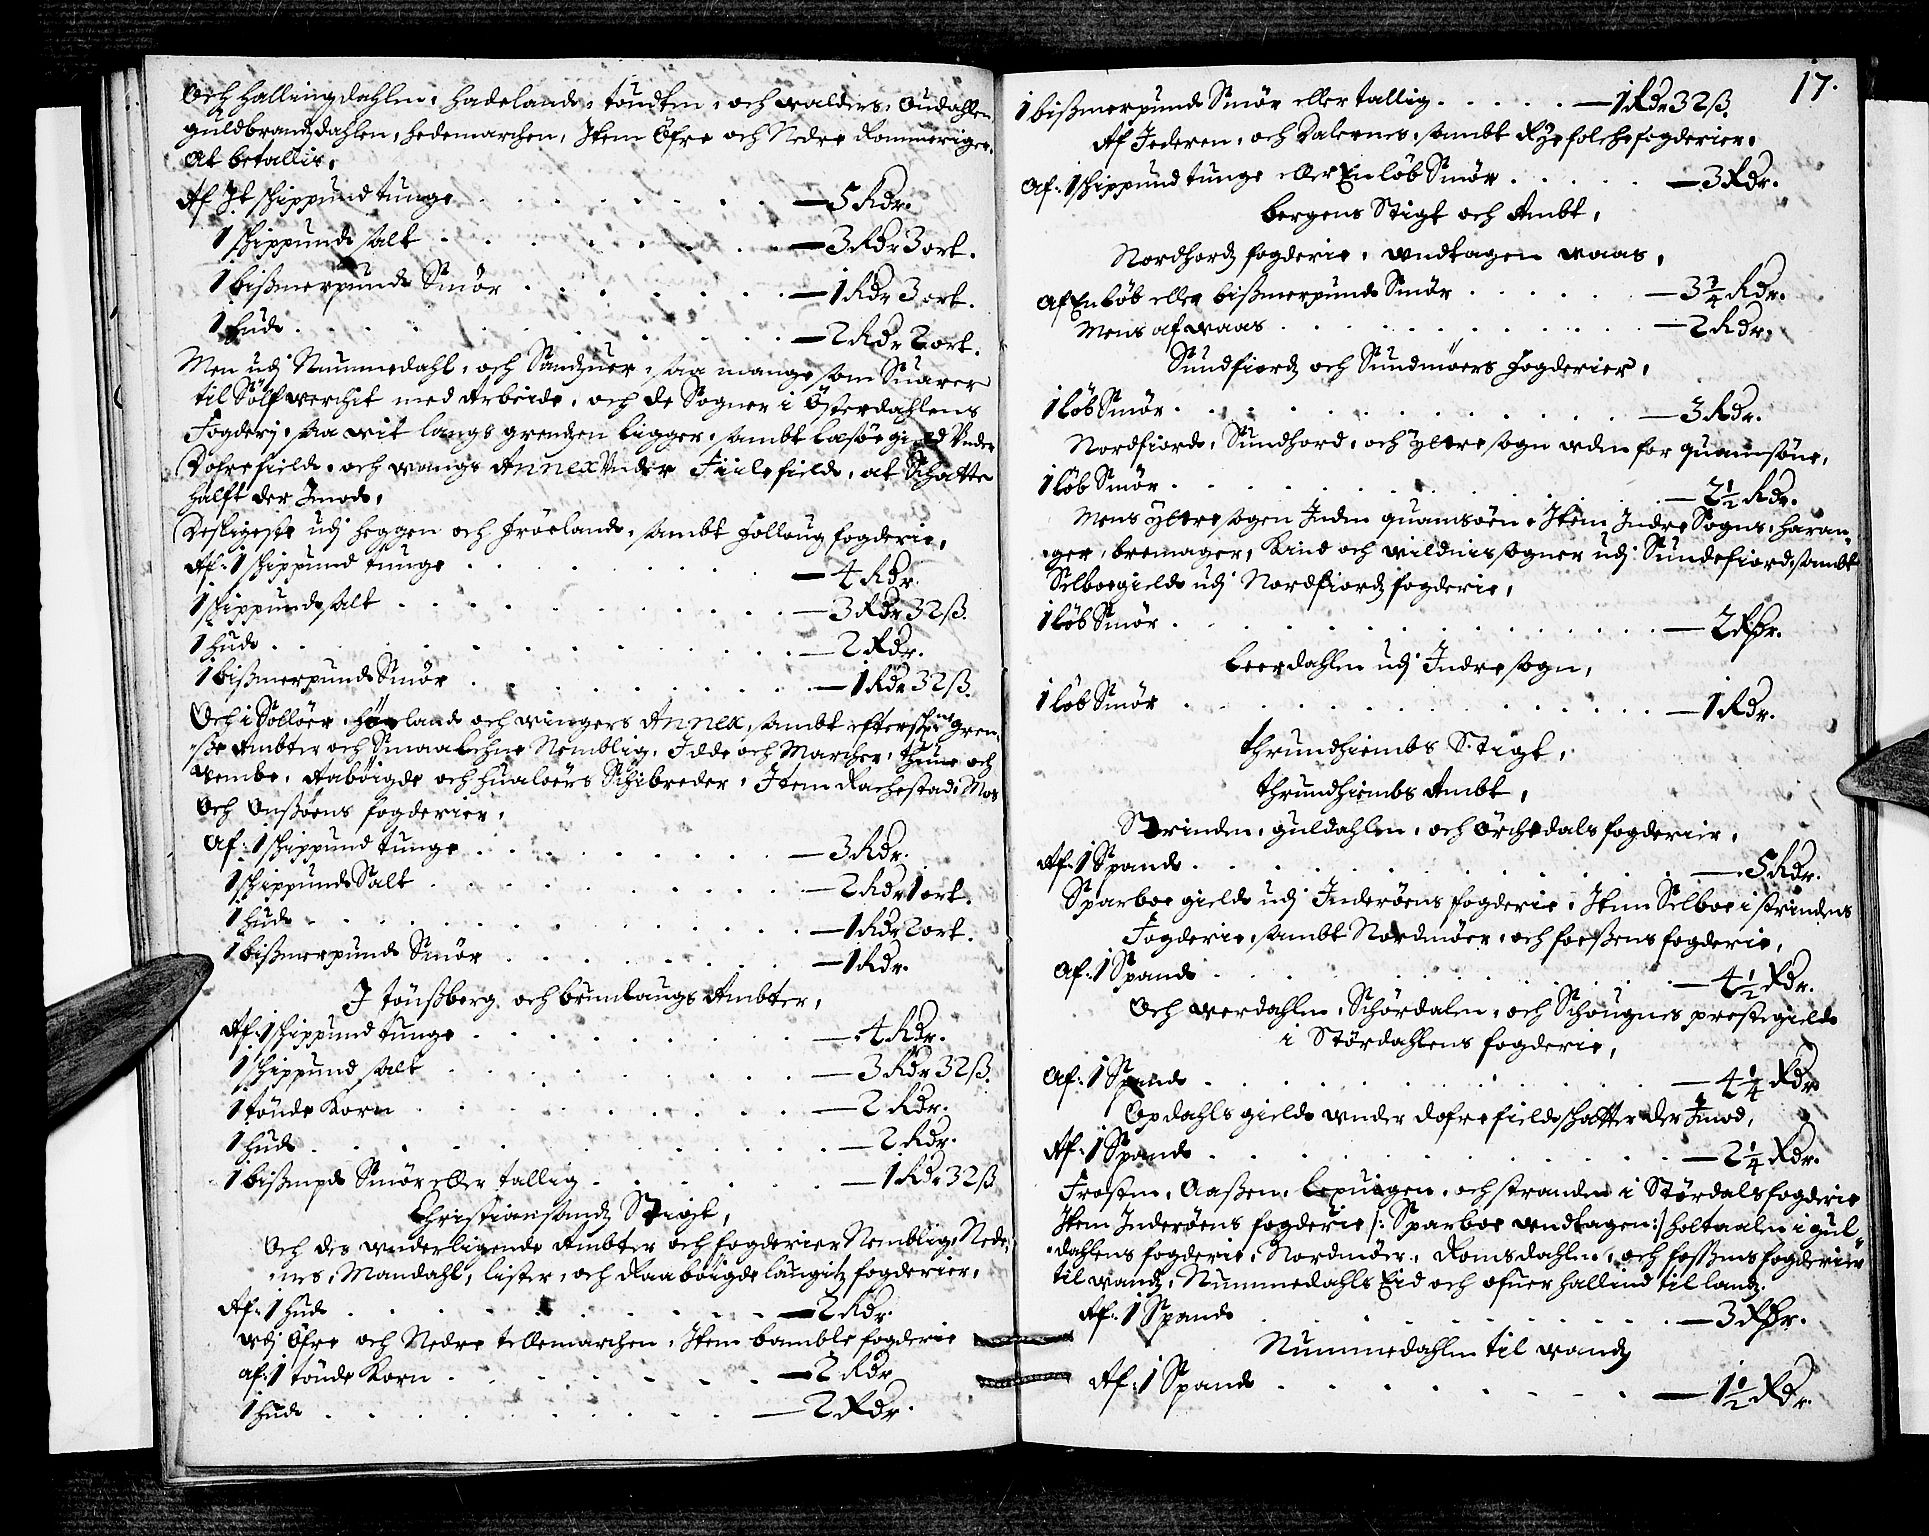 Och Hallingdahlen, Hadelands, toudten, och walders, Oudahlen
guldbrandzdahlen, Hedemarchen, Item Öfre och Nedre Rommeriger,
At betallis,
Af It schippund tunge — 5 Rdr.
1 schippunds salt — 3 Rdr 3 ort.
1 bißmerpunds Smör — 1 Rdr 3 ort.
1 huds — 2 Rdr 2 ort.
Men udj Nummedahl, och Sandzuer, saa mange som Suarer
til Sölfwerchit med Arbeide, och de Sogner i Österdahlens
Fogderj, saa wit langs grendzen ligger, sambt Læsöe gield Under
Dofrefields, och wangs Annex Under Fiilefields, at Schatte
halft der Imods,
Desligeste udj Heggen och Fröelands, sambt Folloug fogderie,
Af: 1 schippund tunge — 4 Rdr.
1 schippunds salt — 3 Rdr 32 ß.
1 huds — 2 Rdr.
1 bißmerpunds Smör — 1 Rdr 32 ß.
Och i Sollöer, Höylands och wingers Annex, sambt effterschne gren¬
ße Ambter och Smaalehne Nemblig, Idde och Marcher, thune och
wembe, Aaböigde och Hualöers Schibreder, Item Rachestad, Mos
Och Onßöens fogderier,
Af: 1 schippund tunge — 3 Rdr.
1 schippunds Salt — 2 Rdr 1 ort.
1 huds — 1 Rdr 2 ort.
1 bißmerpunds Smör — 1 Rdr.
I Tönßberg och brunlaugs Ambter,
Af: 1 schippund tunge — 4 Rdr.
1 schippund salt — 3 Rdr 32 ß.
1 tönde Korn — 2 Rdr.
1 huds — 2 Rdr.
1 bißmpd Smör eller tallig — 1 Rdr 32 ß
Christiansandz Stigt,
Och des underligende Ambter och fogderier Nemblig, Nede¬
nes, Mandahl, lister, och Raaböigde laugitz fogderier,
Af: 1 huds — 2 Rdr.
udj Öfre och Nedre tellemarchen, Item bamble fogderie
af: 1 tönde Korn — 2 Rdr
1 huds — 2 Rdr.
17.
1 bißmerpunds Smör eller tallig — 1 Rdr 32 ß.
Af Jederen, och Dalernes, sambt Ryefolche fogderier,
Af: 1 schippund tunge eller En löb Smör — 3 Rdr.
bergens Stigt och Ambt,
Nordhordz fogderie, undtagen waas,
Af En löb eller bißmerpunds Smör — 3 3/4 Rdr.
Mens af waas — 2 Rdr,
Sundfiordz och Sundmöers Fogderier,
1 löb Smör — 3 Rdr.
Nordfiords, Sundhord, och yttre sogn uden for quamsöne,
1 löb Smör — 2 1/2 Rdr.
Mens yttre sogen Inden quamsöen, Item Indre Sogns, Haran¬
ger, bremager, Kind och wildnis sogner udj Sundefiord, sambt
Selboegields udj Nordfiordz fogderie,
1 löb Smör — 2 Rdr.
Leerdahlen udj Indre sogn,
1 löb Smör — 1 Rdr.
Thrundhiembs Stigt,
Thrundhiembs Ambt,
Strinden, guldahlen, och Örchedals fogderier,
Af: 1 Spands — 5 Rdr.
Sparboe gields udj Inderöens fogderie, Item Selboe i strindens
Fogderie, sambt Nordmöer, och foeßens fogderie,
Af: 1 Spands — 4 1/2 Rdr.
Och werdahlen, Schördalen, och Schougnes prestegields
i Stördahlens fogderie,
Af: 1 Spands — 4 1/4 Rdr
Opdahls gields under dofrefields schatter der Imod,
Af: 1 Spands — 2 1/4 Rdr.
Frosten, Aaßen, Lexuigen, och stranden i Stördals fogderie
Item Inderöens fogderie /: Sparboe undtagen :/ Holtaalen i gul¬
dahlens fogderie, Nordmöer, Romsdahlen, och foßens fogderier
til wandz, Nummedahls Eid och ofuer hallind til landz.
Af: 1 Spands — 3 Rdr.
Nummedahlen til wandz
Af: 1 Spands — 1 1/2 Rdr.